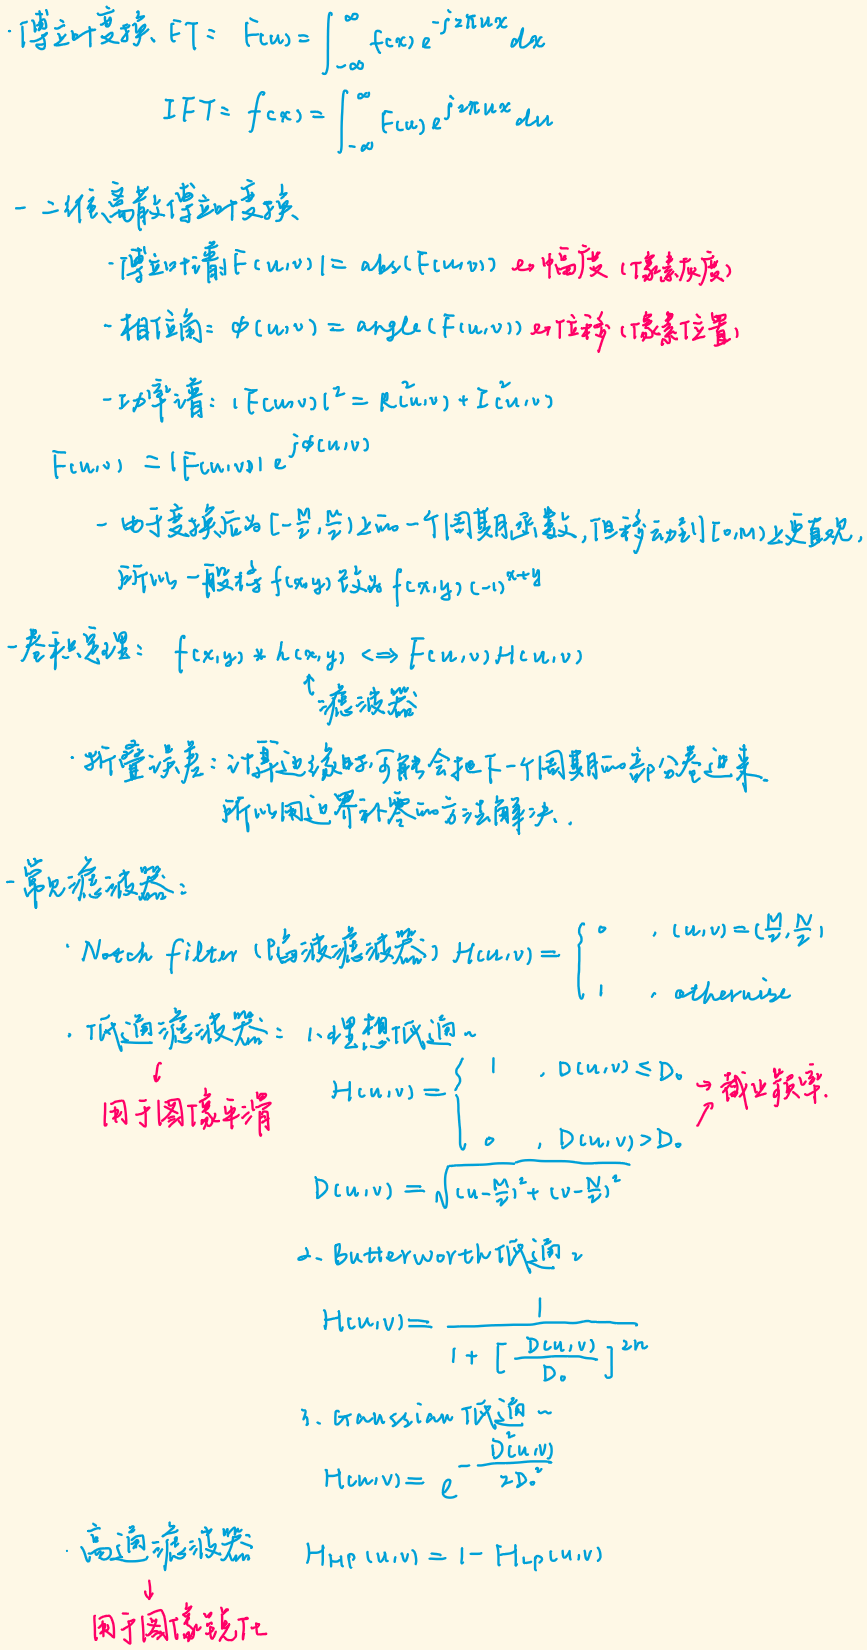 ·傅立叶变换、FT: F(u) = ∫_{-∞}^{∞} f(x) e^{-j2πux} dx
IFT: f(x) = ∫_{-∞}^{∞} F(u) e^{j2πux} du
- 二维离散傅立叶变换
- 傅立叶谱 |F(u,v)| = abs(F(u,v)) ↔ 幅度 (像素灰度)
- 相位角: φ(u,v) = angle(F(u,v)) ↔ 位移 (像素位置)
- 功率谱: |F(u,v)|² = R²(u,v) + I²(u,v)
F(u,v) = |F(u,v)| e^{jφ(u,v)}
- 由于变换后为[-M/2, M/2)上的一个周期函数,但移动到[0,M)上更直观,
所以一般将 f(x,y) 改为 f(x,y)(-1)^{x+y}
- 卷积定理: f(x,y) * h(x,y) <=> F(u,v)H(u,v)
↑滤波器
· 折叠误差: 计算边缘时,可能会把下一个周期的部分卷进来.
所以用边界补零的方法解决.
- 常见滤波器:
· Notch filter (陷波滤波器) H(u,v) = { 0 , (u,v) = (M/2, N/2)
1 , otherwise
· 低通滤波器: 1.理想低通~
↓
用于图像平滑
H(u,v) = { 1 , D(u,v) ≤ D₀
→ 截止频率.
0 , D(u,v) > D₀
D(u,v) = √((u-M/2)² + (v-N/2)²)
2. Butterworth低通~
H(u,v) = 1 / (1 + [D(u,v)/D₀]^{2n})
3. Gaussian低通~
H(u,v) = e^{-D²(u,v)/2D₀²}
· 高通滤波器 H_{HP}(u,v) = 1 - H_{LP}(u,v)
↓
用于图像锐化